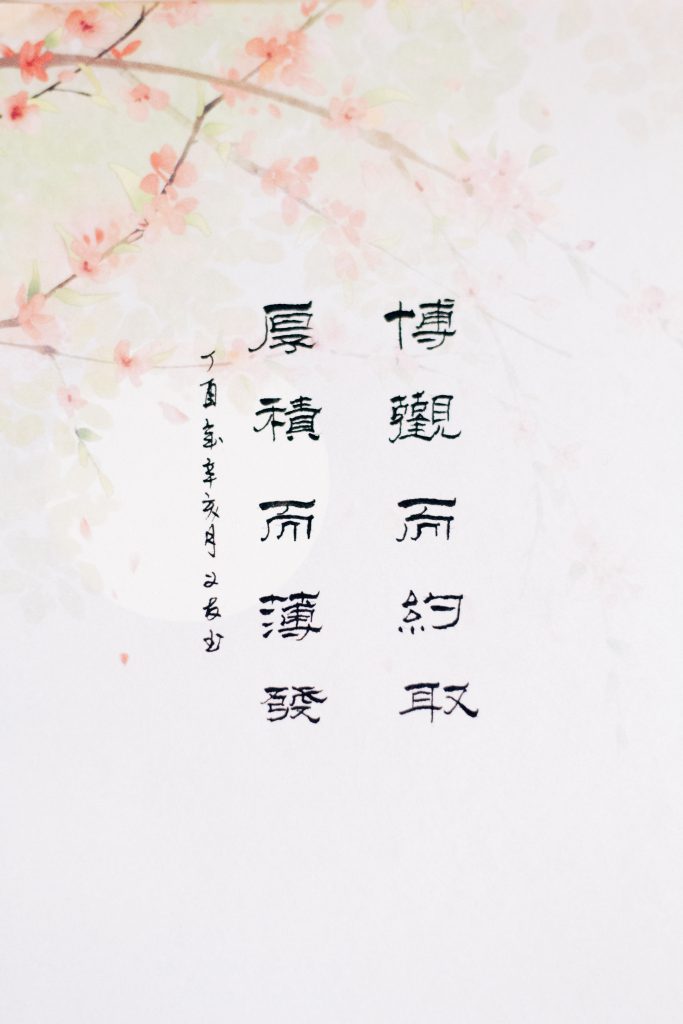 博觀而約取
厚積而薄發
丁酉年辛亥月文友书